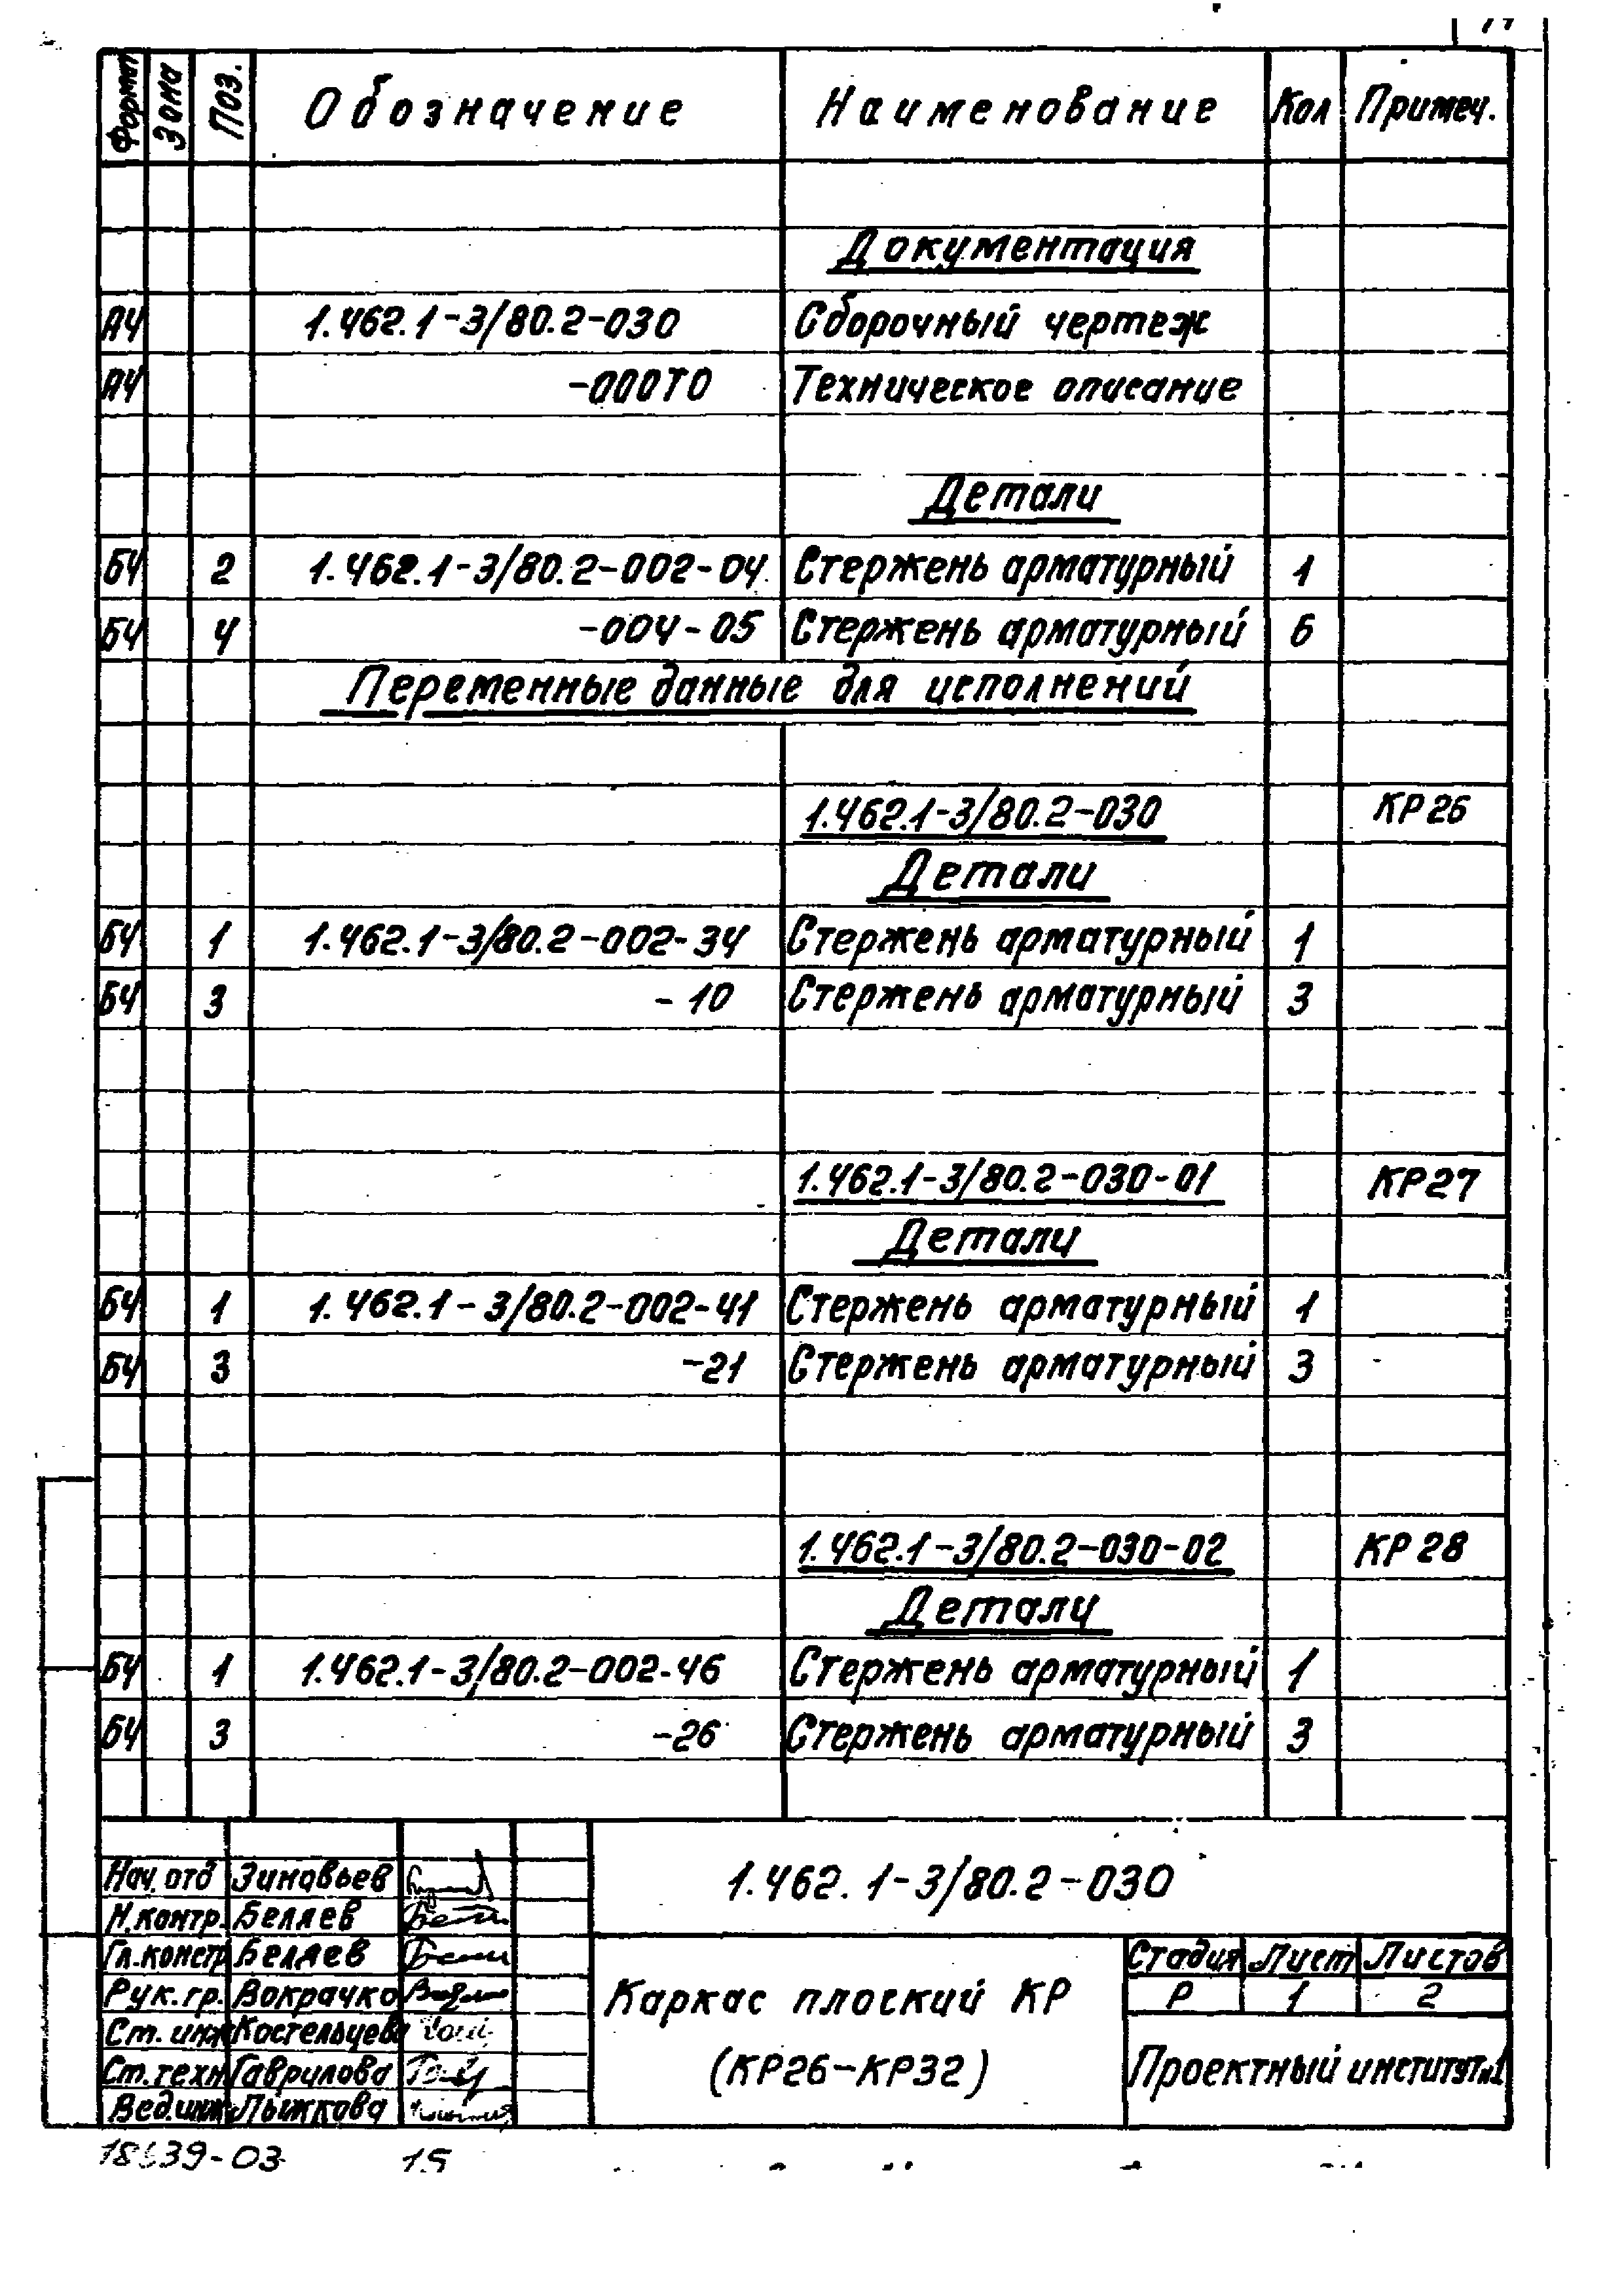 Формат Зона Поз. Обозначение Наименование Кол Примеч.
Документация
А4 1.462.1-3/80.2-030 Сборочный чертеж
А4 -000ТО Техническое описание
Детали
БЧ 2 1.462.1-3/80.2-002-04 Стержень арматурный 1
БЧ 4 -004-05 Стержень арматурный 6
Переменные данные для исполнений
1.462.1-3/80.2-030 КР26
Детали
БЧ 1 1.462.1-3/80.2-002-34 Стержень арматурный 1
БЧ 3 -10 Стержень арматурный 3
1.462.1-3/80.2-030-01 КР27
Детали
БЧ 1 1.462.1-3/80.2-002-41 Стержень арматурный 1
БЧ 3 -21 Стержень арматурный 3
1.462.1-3/80.2-030-02 КР28
Детали
БЧ 1 1.462.1-3/80.2-002-46 Стержень арматурный 1
БЧ 3 -26 Стержень арматурный 3
Нач. отд Зиновьев
Н.контр. Беляев
Гл.констр Беляев
Рук.гр. Вокрачко
Ст. инж Костельцева
Ст.техн Гаврилова
Вед.инж Лыжкова
1.462.1-3/80.2-030
Каркас плоский КР
(КР26-КР32)
Стадия Лист Листов
Р 1 2
Проектный институт №1
15